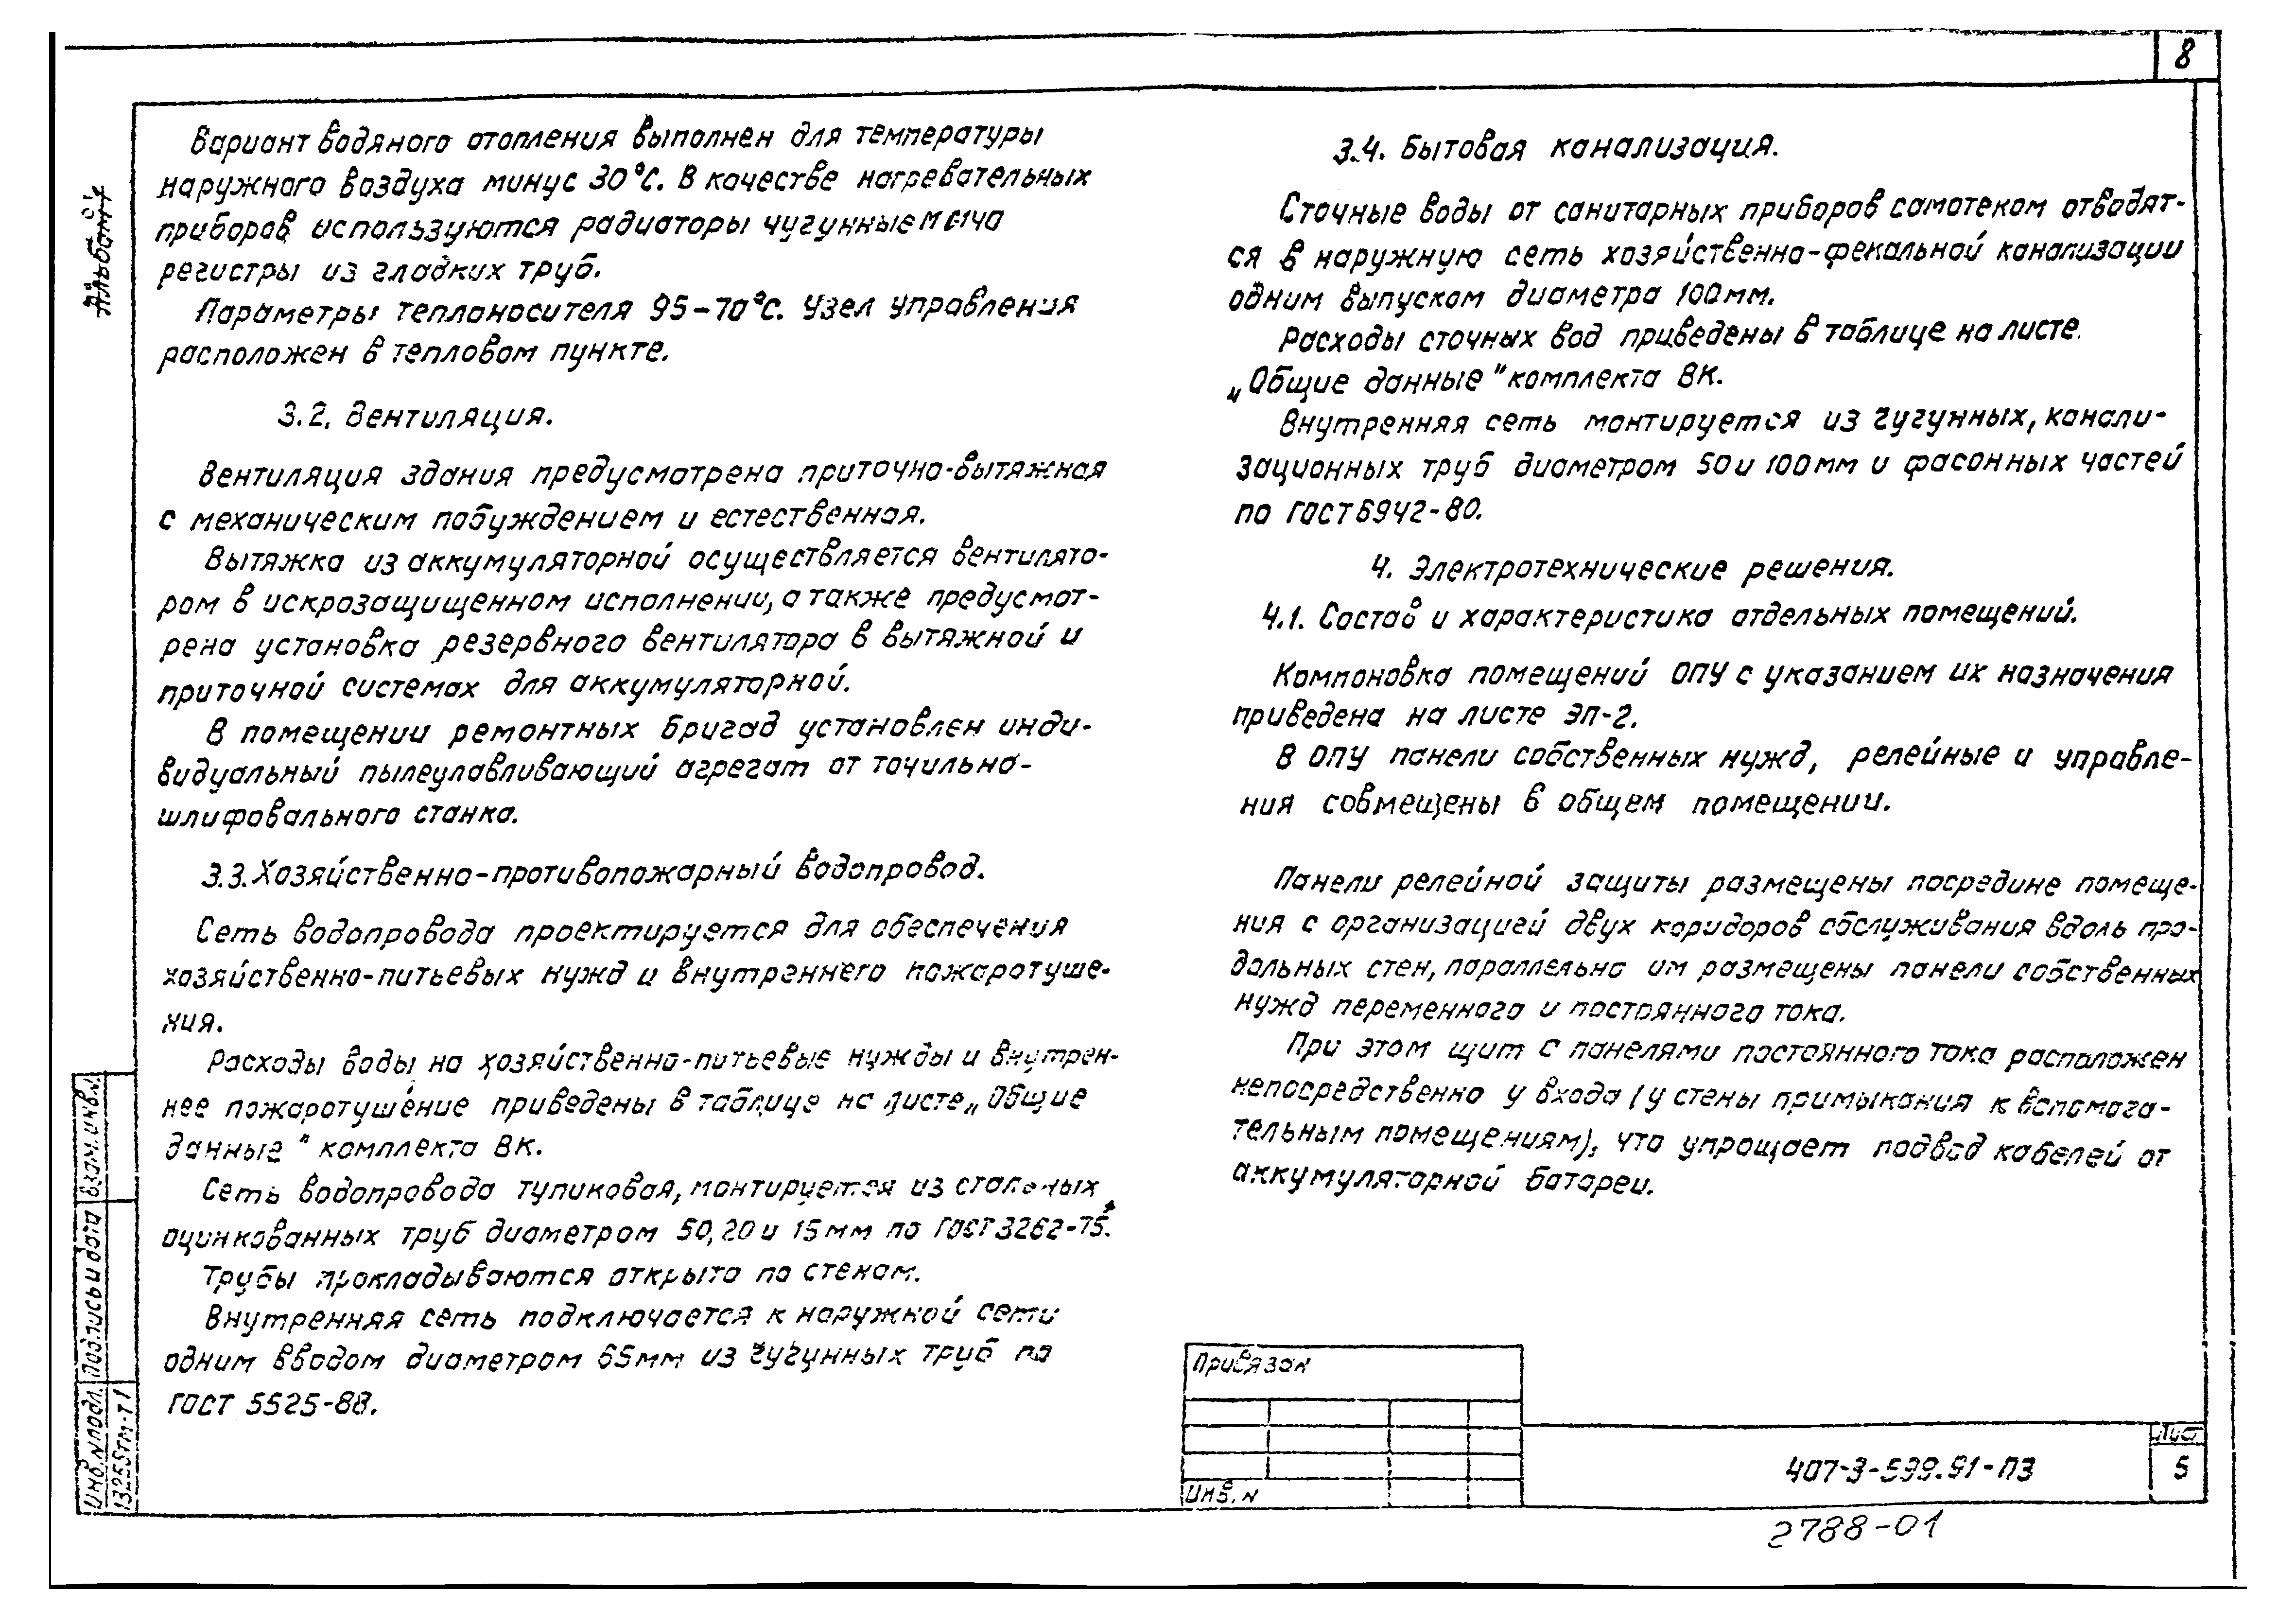 8
Вариант водяного отопления выполнен для температуры
наружного воздуха минус 30°С. В качестве нагревательных
приборов используются радиаторы чугунные
регистры из гладких труб.
Параметры теплоносителя 95-70°С. Узел управления
расположен в тепловом пункте.
3.2. Вентиляция.
Вентиляция здания предусмотрена приточно-вытяжная
с механическим побуждением и естественная.
Вытяжка из аккумуляторной осуществляется вентилято-
ром в искрозащищенном исполнении, а также предусмот-
рена установка резервного вентилятора в вытяжной и
приточной системах для аккумуляторной.
В помещении ремонтных бригад установлен инди-
видуальный пылеулавливающий агрегат от точильно-
шлифовального станка.
3.3. Хозяйственно-противопожарный водопровод.
Сеть водопровода проектируется для обеспечения
хозяйственно-питьевых нужд и внутреннего пожаротуше-
ния.
Расходы воды на хозяйственно-питьевые нужды и внутрен-
нее пожаротушение приведены в таблице на листе „Общие
данные" комплекта ВК.
Сеть водопровода тупиковая, монтируется из стальных
оцинкованных труб диаметром 50, 20 и 15мм по ГОСТ 3262-75*.
Трубы прокладываются открыто по стенам.
Внутренняя сеть подключается к наружной сети
одним вводом диаметром 65мм из чугунных труб по
ГОСТ 5525-88.
3.4. Бытовая канализация.
Сточные воды от санитарных приборов самотеком отводят-
ся в наружную сеть хозяйственно-фекальной канализации
одним выпуском диаметра 100мм.
Расходы сточных вод приведены в таблице на листе.
„Общие данные" комплекта ВК.
Внутренняя сеть монтируется из чугунных, канали-
зационных труб диаметром 50 и 100мм и фасонных частей
по ГОСТ 6942-80.
4. Электротехнические решения.
4.1. Состав и характеристика отдельных помещений.
Компоновка помещений ОПУ с указанием их назначения
приведена на листе ЭП-2.
В ОПУ панели собственных нужд, релейные и управле-
ния совмещены в общем помещении.
Панели релейной защиты размещены посредине помеще-
ния с организацией двух коридоров обслуживания вдоль про-
дольных стен, параллельно им размещены панели собственных
нужд переменного и постоянного тока.
При этом щит с панелями постоянного тока расположен
непосредственно у входа (у стены примыкания к вспомога-
тельным помещениям), что упрощает подвод кабелей от
аккумуляторной батареи.
Альбом 1
Взам.инв.№
Подпись и дата
Инв.№подл.
13255тм-Т1
Привязан
Инв. №
407-3-599.91-ПЗ
Лист
5
2788-01